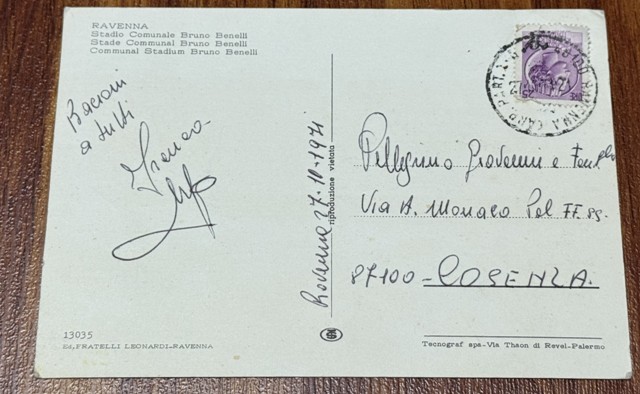 RAVENNA
Stadio Comunale Bruno Benelli
Stade Communal Bruno Benelli
Communal Stadium Bruno Benelli
Bacioni
a tutti
Franco
Ravenna 27.10.1971
riproduzione vietata
Pellegrino Giovanni e
Via A. Monaco Pal FF.SS.
87100-COSENZA.
13035
Ed. FRATELLI LEONARDI-RAVENNA
Tecnograf spa-Via Thaon di Revel-Palermo